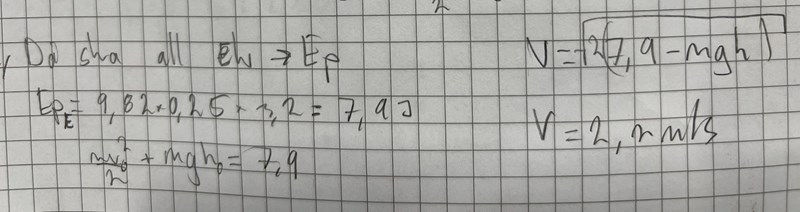 Då ska all Ek → Ep
Ep_E = 9,82 × 0,25 × 3,2 = 7,9 J
mv²/2 + mgh₀ = 7,9
V = √2(7,9 - mgh)
V = 2, m/s